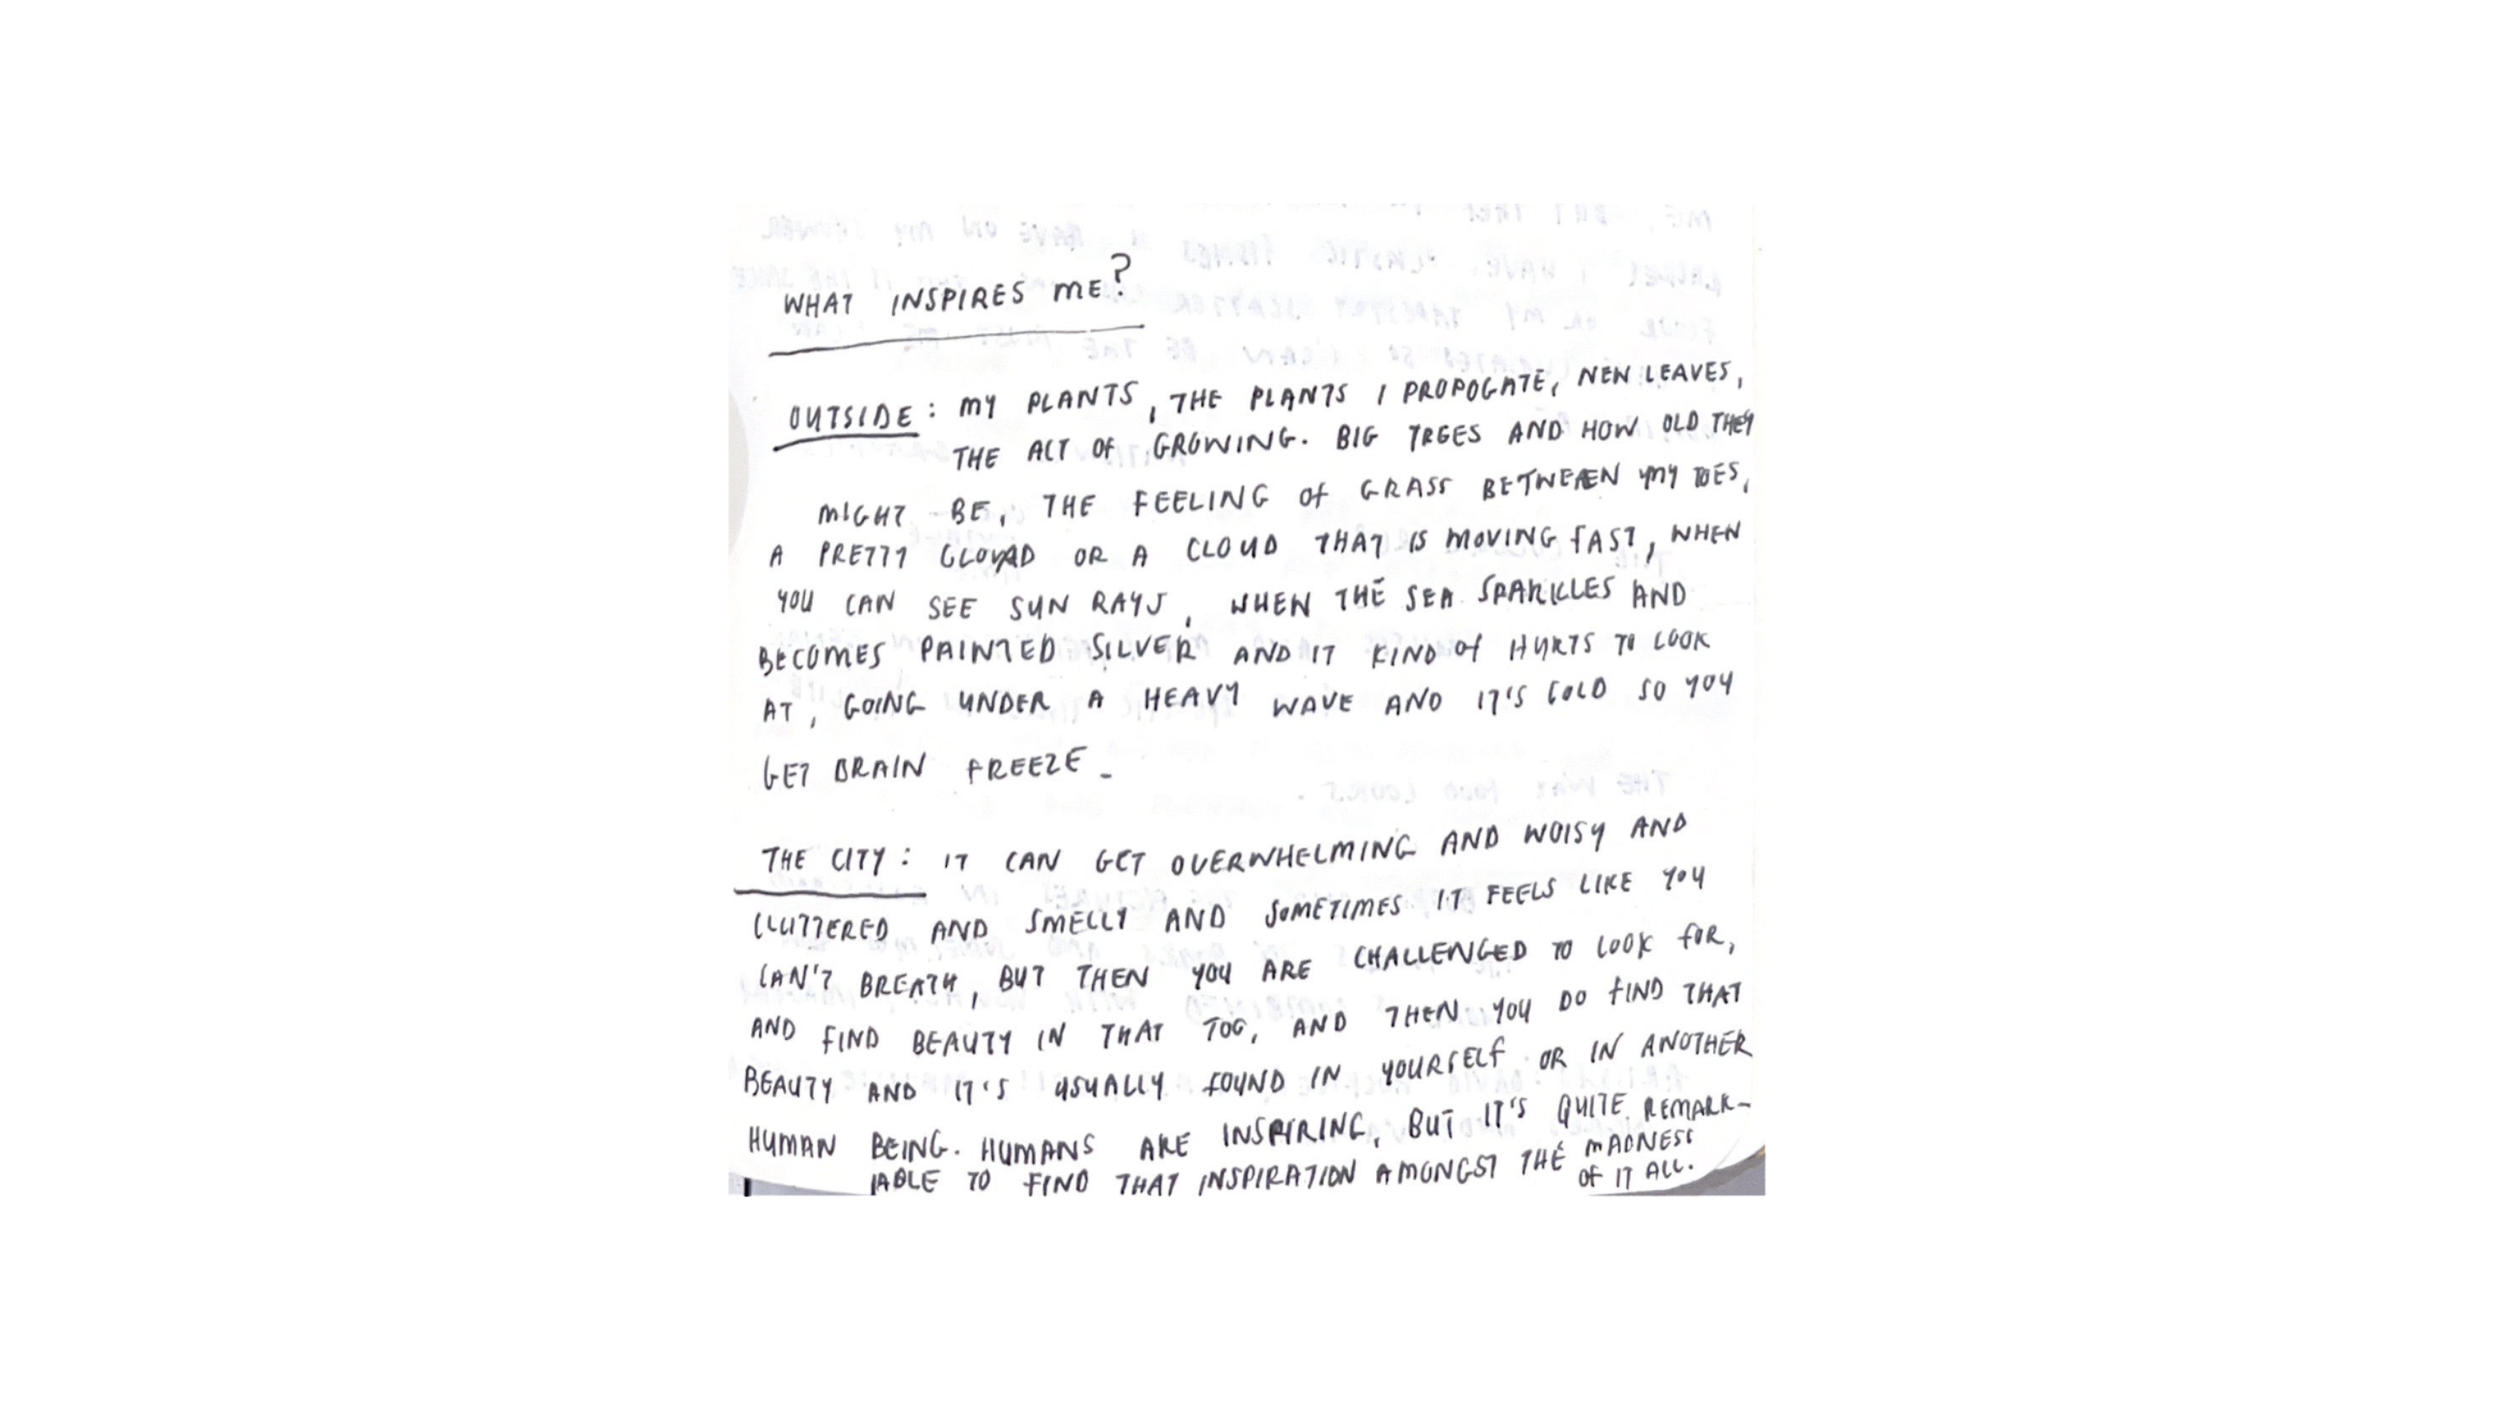 WHAT INSPIRES ME?
OUTSIDE: MY PLANTS, THE PLANTS I PROPOGATE, NEW LEAVES,
THE ACT OF GROWING. BIG TREES AND HOW OLD THEY
MIGHT BE, THE FEELING OF GRASS BETWEEN MY TOES,
A PRETTY CLOUD OR A CLOUD THAT IS MOVING FAST, WHEN
YOU CAN SEE SUN RAYS, WHEN THE SEA SPARKLES AND
BECOMES PAINTED SILVER AND IT KIND OF HURTS TO LOOK
AT, GOING UNDER A HEAVY WAVE AND IT'S COLD SO YOU
GET BRAIN FREEZE -
THE CITY: IT CAN GET OVERWHELMING AND NOISY AND
CLUTTERED AND SMELLY AND SOMETIMES IT FEELS LIKE YOU
CAN'T BREATH, BUT THEN YOU ARE CHALLENGED TO LOOK FOR,
AND FIND BEAUTY IN THAT TOO, AND THEN YOU DO FIND THAT
BEAUTY AND IT'S USUALLY FOUND IN YOURSELF OR IN ANOTHER
HUMAN BEING. HUMANS ARE INSPIRING, BUT IT'S QUITE REMARK-
ABLE TO FIND THAT INSPIRATION AMONGST THE MADNESS
OF IT ALL.